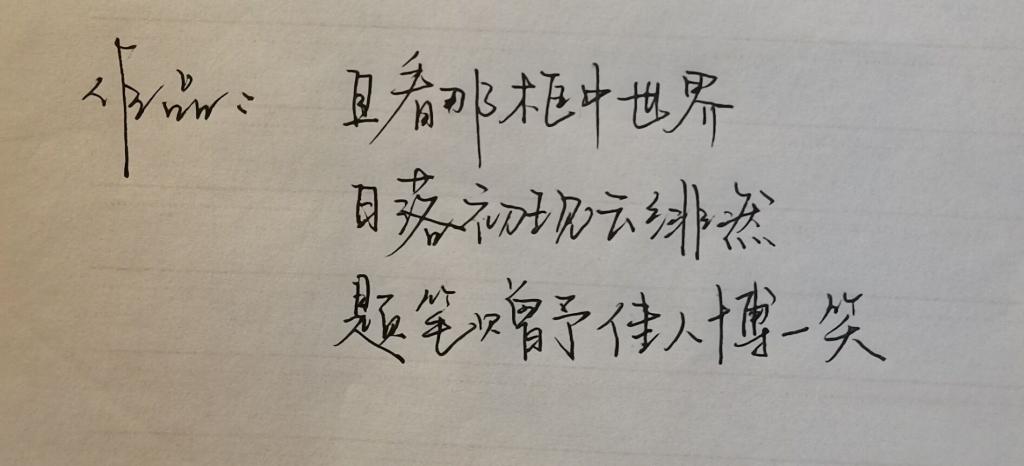 作品： 且看那框中世界
日落初现云绯然
题笔只曾予佳人博一笑